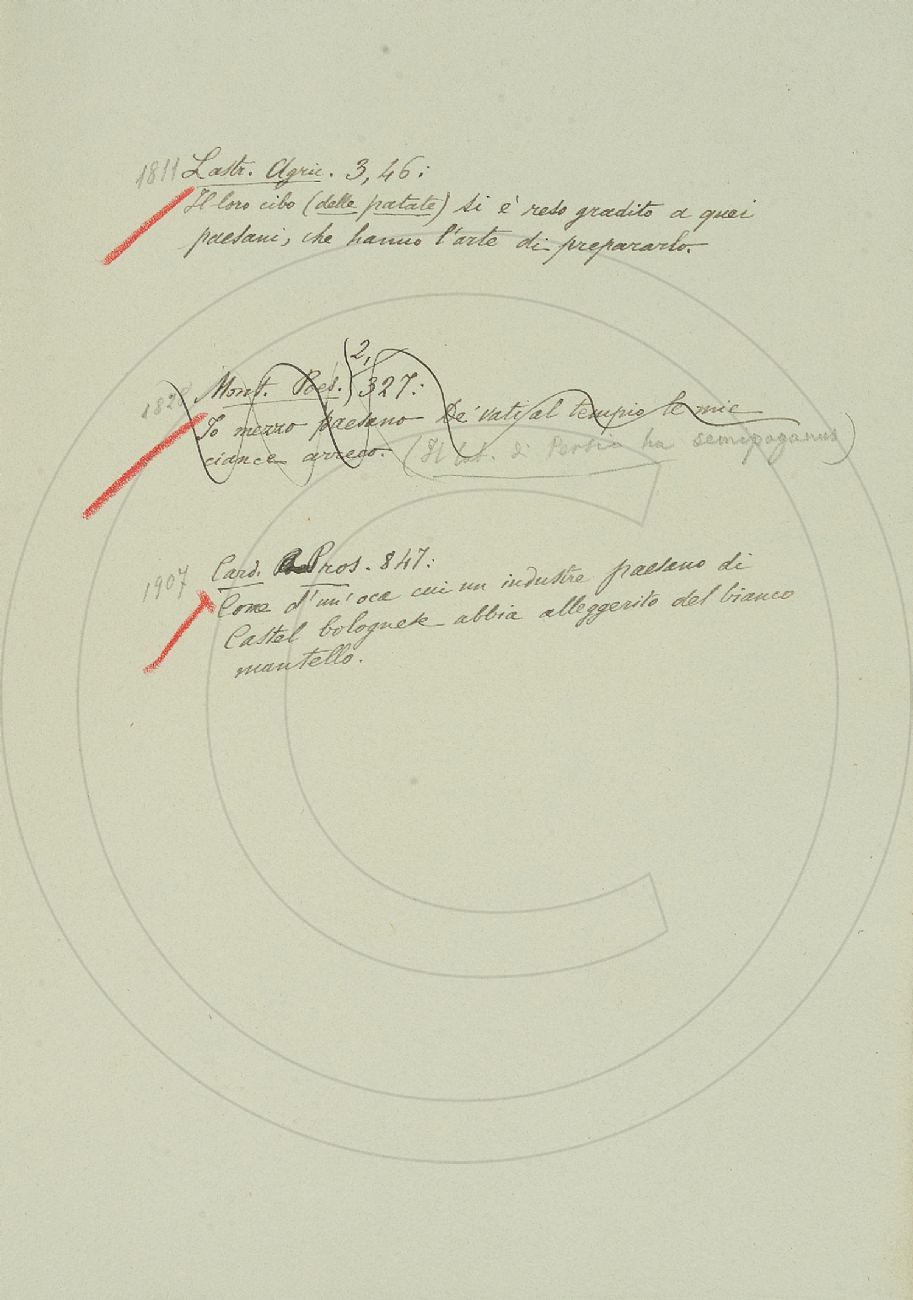 1811 Lastr. Agric. 3, 46:
Il loro cibo (delle patate) si è reso gradito a quei
paesani, che hanno l'arte di prepararlo.
1828 Mont. Poes. 2, 327:
Io mezzo paesano De' vati al tempio le mie
ciance arreco. (Il lat. di Persio ha semipaganus)
1907 Card. Pros. 847:
Come d'un'oca cui un industre paesano di
Castel bolognese abbia alleggerito del bianco
mantello.